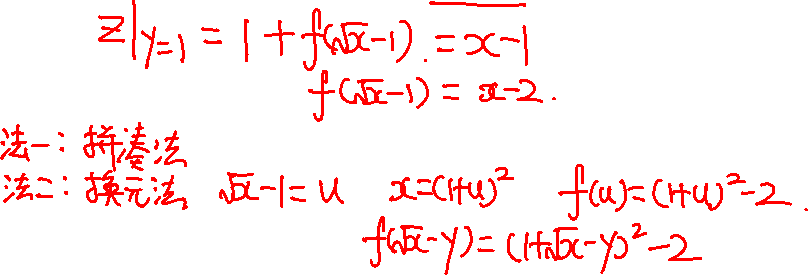 z|y=1 = 1 + f(√x-1) = x-1
f(√x-1) = x-2.
法一：拼凑法
法二：换元法 √x-1=u x=(1+u)² f(u)=(1+u)²-2.
f(√x-y)=(1+√x-y)²-2